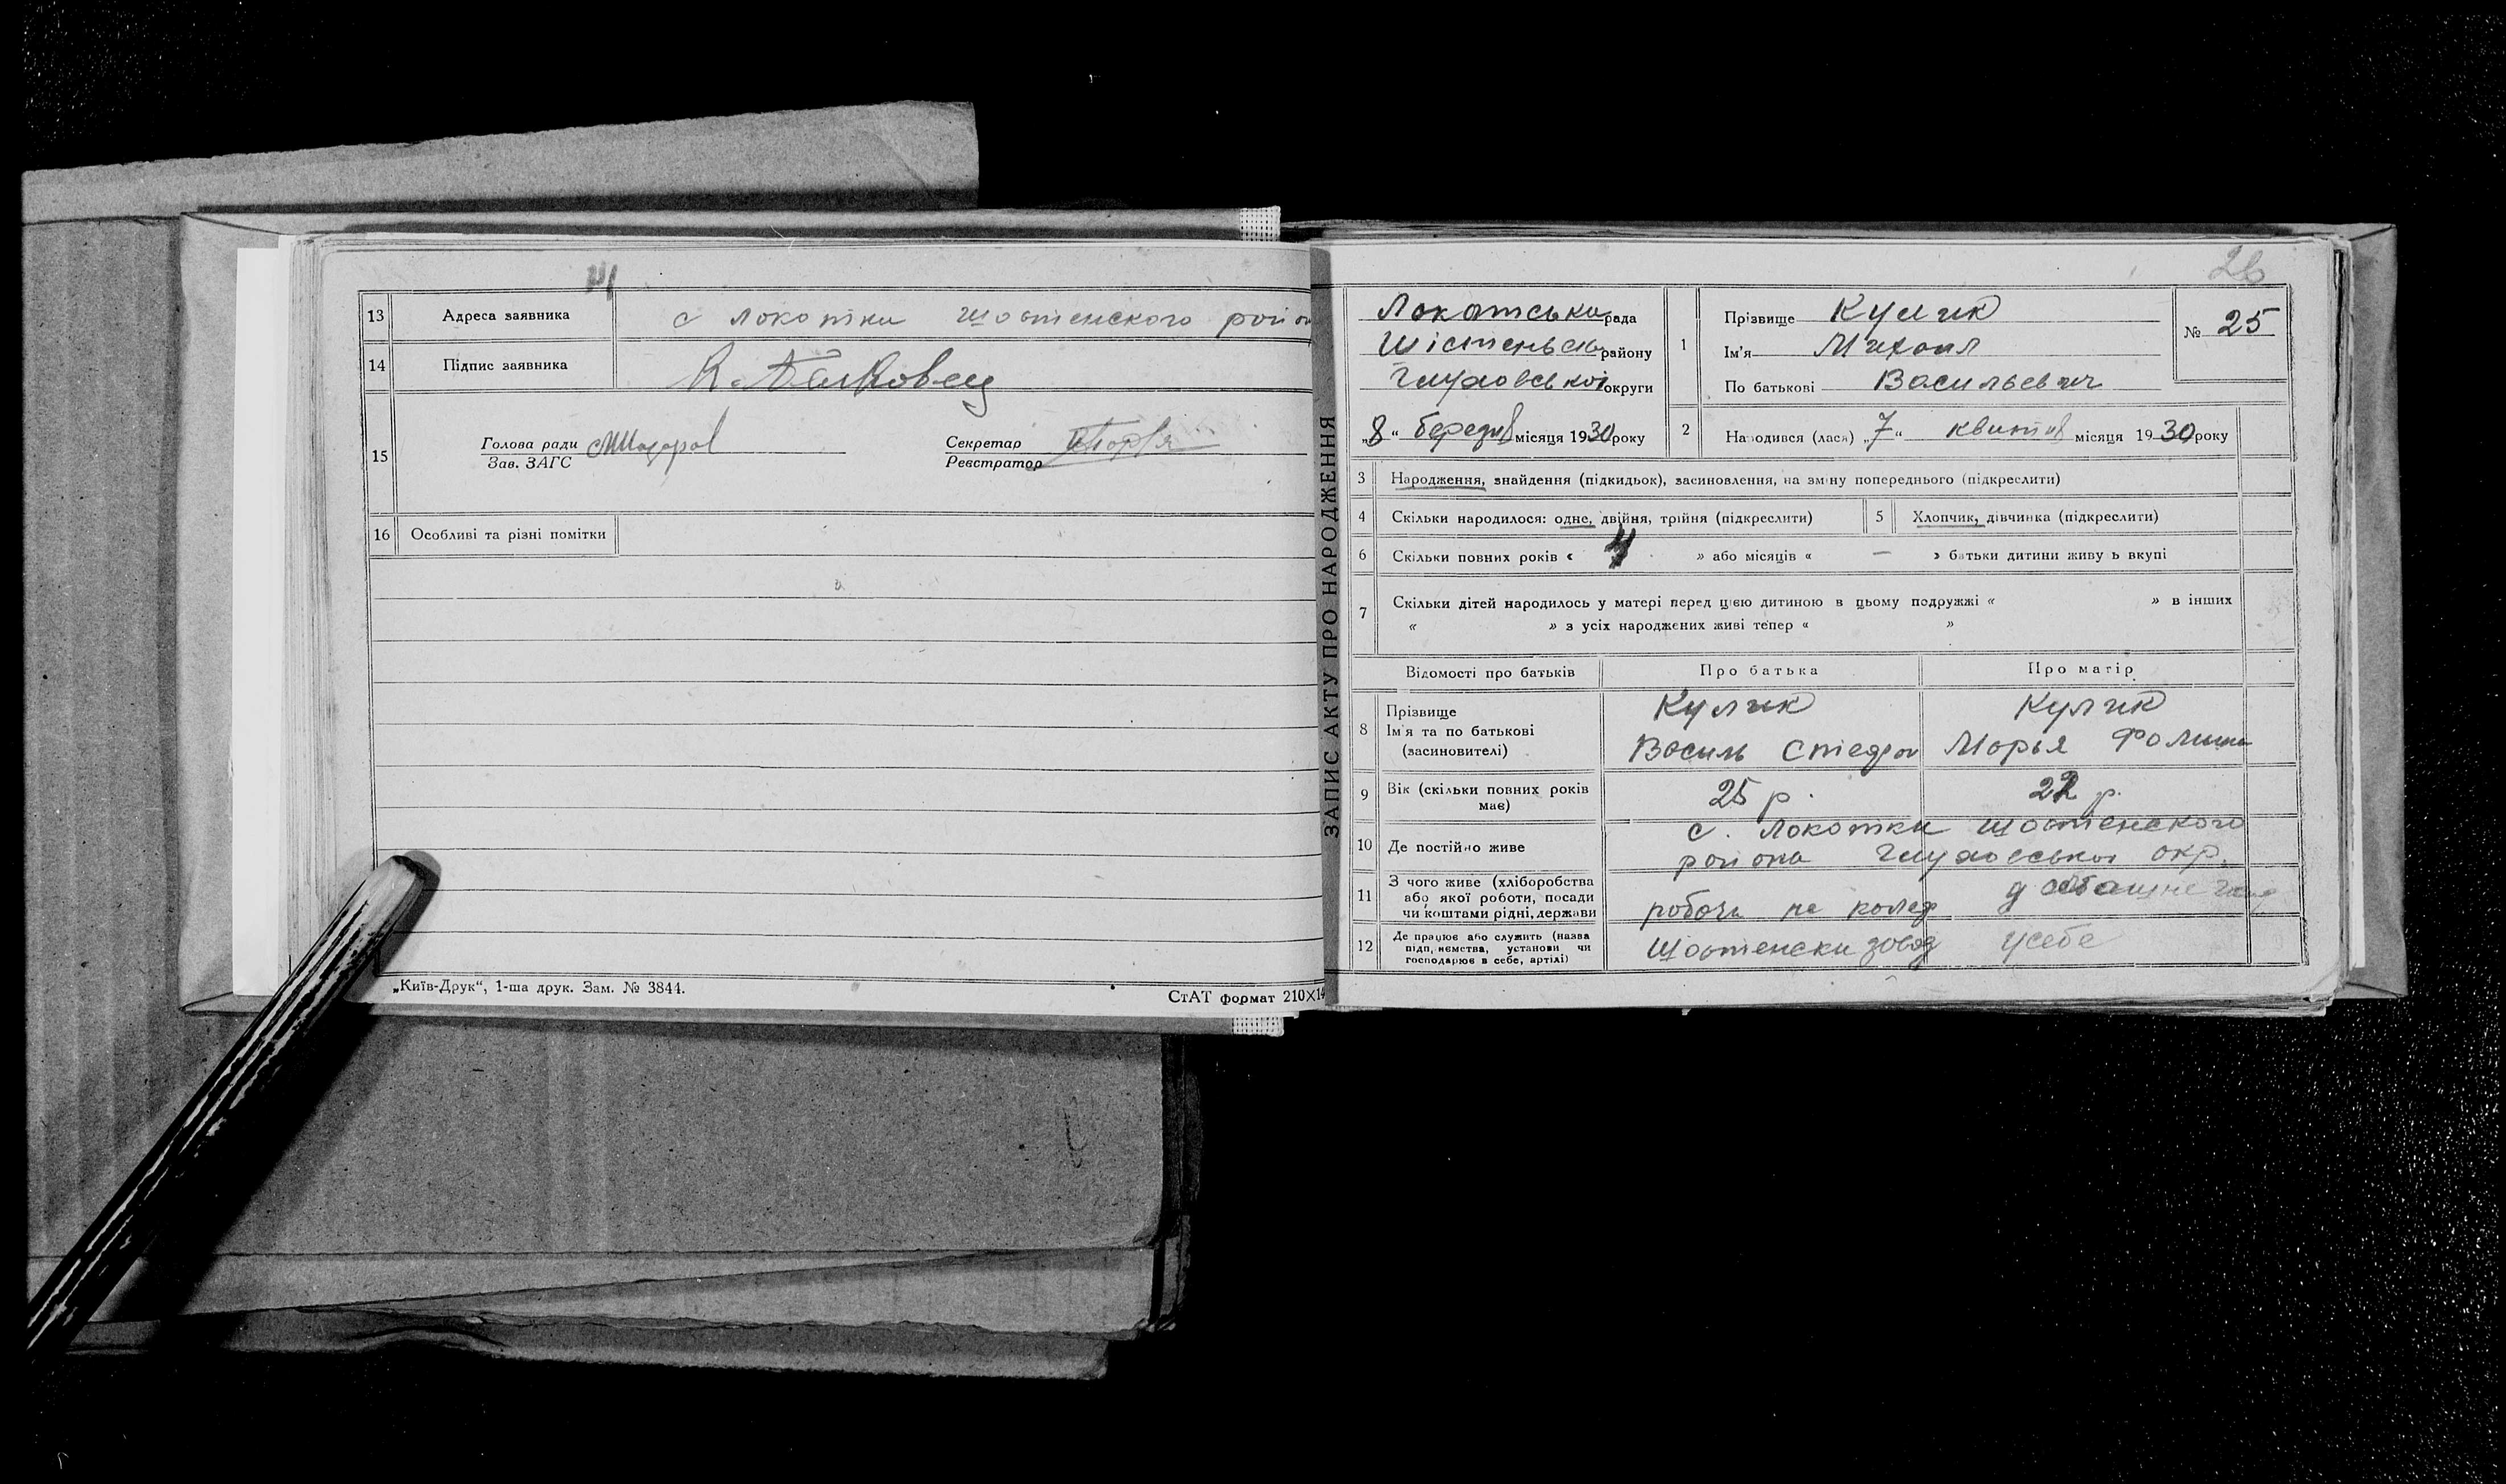 13 Адреса заявника с Локотки Шостенского район
14 Підпис заявника
15 Голова ради Секретар
Зав. ЗАГС Реєстратор
16 Особливі та різні помітки
„Київ-Друк“, 1-ша друк. Зам. № 3844.
СтАТ формат 210×14
ЗАПИС АКТУ ПРО НАРОДЖЕННЯ
26
Локотська рада
району
Глуховської округи
„8“ березня місяця 1930 року
1 Прізвище Кулик
Ім'я Михаил
По батькові Васильевич
№ 25
2 Народився (лася) „7“ квитня місяця 1930 року
3 Народження, знайдення (підкидьок), засиновлення, на зміну попереднього (підкреслити)
4 Скільки народилося: одне, двійня, трійня (підкреслити) 5 Хлопчик, дівчинка (підкреслити)
6 Скільки повних років « 4 » або місяців « — » батьки дитини живуть вкупі
7 Скільки дітей народилось у матері перед цією дитиною в цьому подружжі « » в інших
« » з усіх народжених живі тепер « »
Відомості про батьків Про батька Про матір
8 Прізвище Кулик Кулик
Ім'я та по батькові Василь Марья
(засновителі)
9 Вік (скільки повних років має) 25 р. 22 р.
10 Де постійно живе с. Локотки Шостенского
района Глуховськой окр.
11 З чого живе (хліборобства
або якої роботи, посади
чи коштами рідні, держави робочи
12 Де працює або служить (назва
підприємства, установи чи
господарює в себе, артілі) Шостенски завод усебе